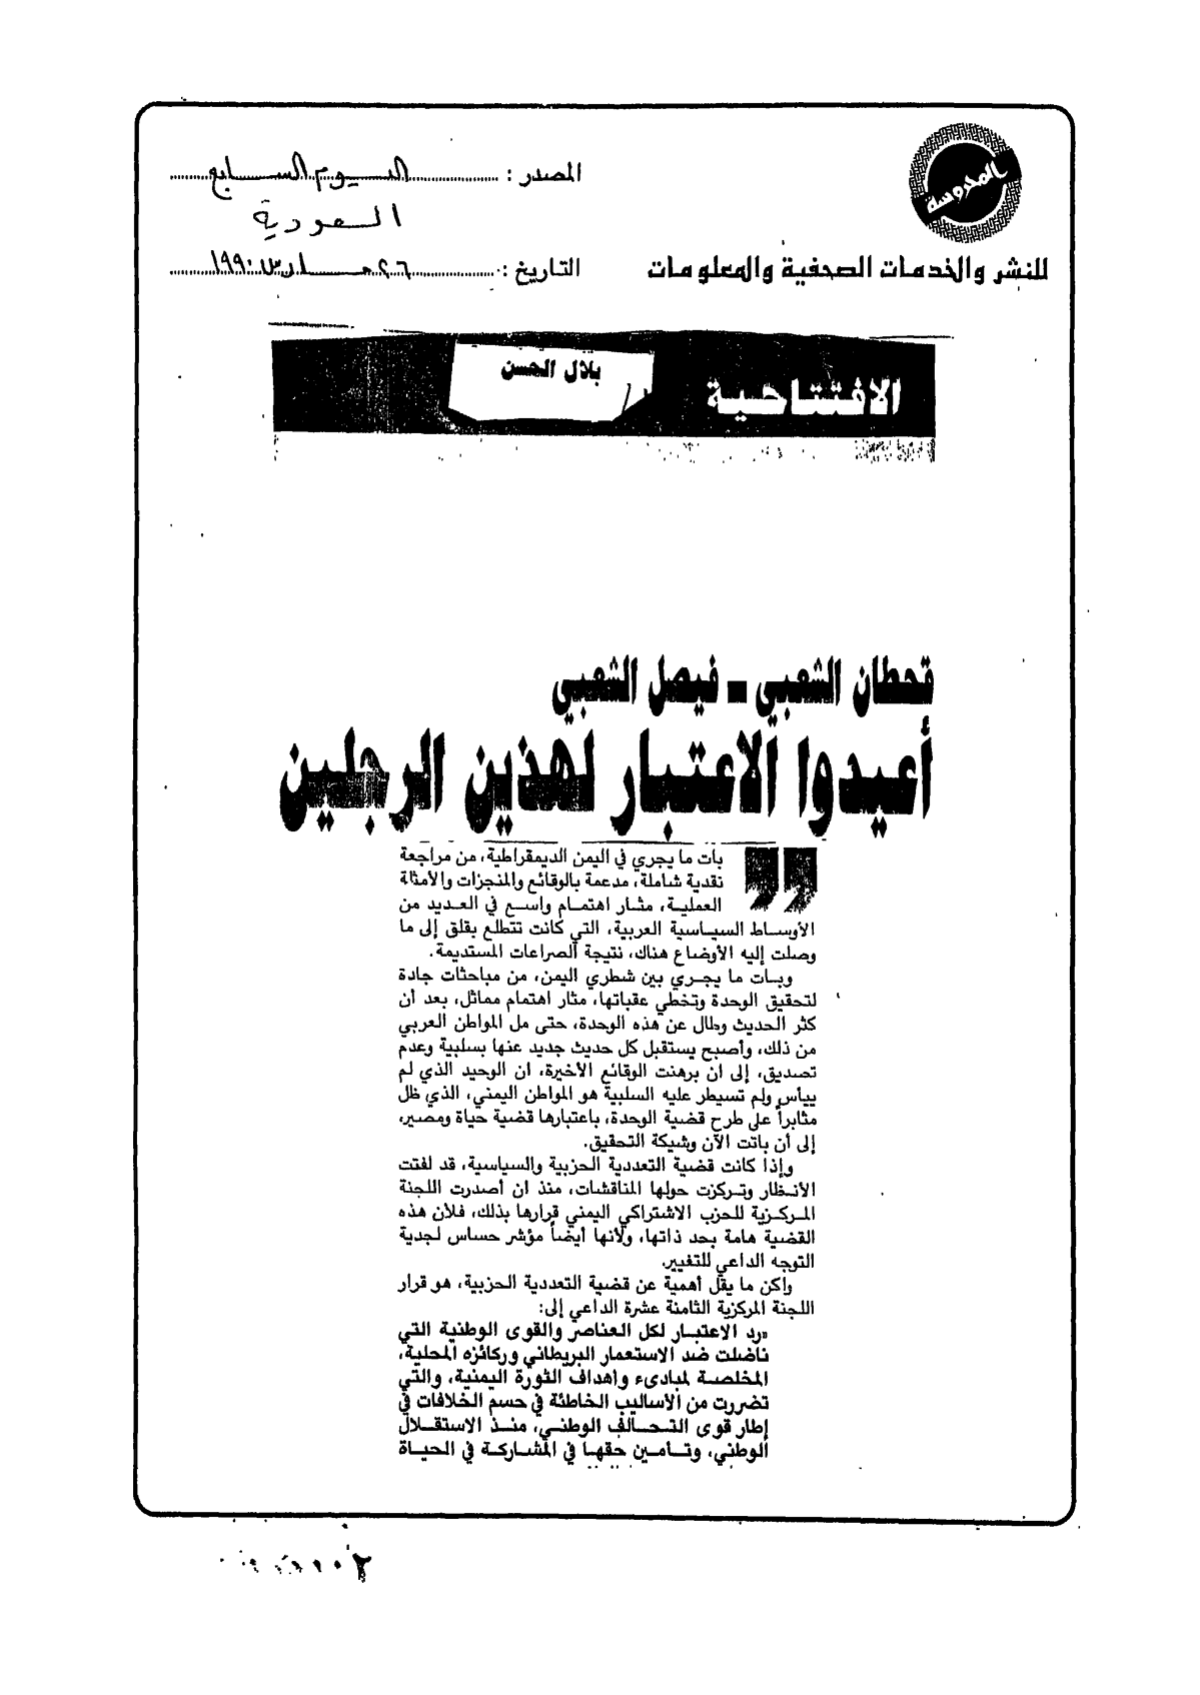 المحروسة
للنشر والخدمات الصحفية والمعلومات
المصدر : اليوم السابع
السعودية
التاريخ : ٢٦ مارس ١٩٩٠
الافتتاحية
بلال الحسن
قحطان الشعبي - فيصل الشعبي
أعيدوا الاعتبار لهذين الرجلين
بات ما يجري في اليمن الديمقراطية، من مراجعة
نقدية شاملة، مدعمة بالوقائع والمنجزات والأمثالة
العملية، مثار اهتمام واسع في العديد من
الأوساط السياسية العربية، التي كانت تتطلع بقلق إلى ما
وصلت إليه الأوضاع هناك، نتيجة الصراعات المستديمة.
وبات ما يجري بين شطري اليمن، من مباحثات جادة
لتحقيق الوحدة وتخطي عقباتها، مثار اهتمام مماثل، بعد أن
كثر الحديث وطال عن هذه الوحدة، حتى مل المواطن العربي
من ذلك، وأصبح يستقبل كل حديث جديد عنها بسلبية وعدم
تصديق، إلى ان برهنت الوقائع الأخيرة، ان الوحيد الذي لم
ييأس ولم تسيطر عليه السلبية هو المواطن اليمني، الذي ظل
مثابراً على طرح قضية الوحدة، باعتبارها قضية حياة ومصير،
إلى أن باتت الآن وشيكة التحقيق.
وإذا كانت قضية التعددية الحزبية والسياسية، قد لفتت
الأنظار وتركزت حولها المناقشات، منذ ان أصدرت اللجنة
المركزية للحزب الاشتراكي اليمني قرارها بذلك، فلأن هذه
القضية هامة بحد ذاتها، ولأنها أيضاً مؤشر حساس لجدية
التوجه الداعي للتغيير.
ولكن ما يقل أهمية عن قضية التعددية الحزبية، هو قرار
اللجنة المركزية الثامنة عشرة الداعي إلى:
«رد الاعتبار لكل العناصر والقوى الوطنية التي
ناضلت ضد الاستعمار البريطاني وركائزه المحلية،
المخلصة لمبادىء وأهداف الثورة اليمنية، والتي
تضررت من الأساليب الخاطئة في حسم الخلافات في
إطار قوى التحالف الوطني، منذ الاستقلال
الوطني، وتأمين حقها في المشاركة في الحياة